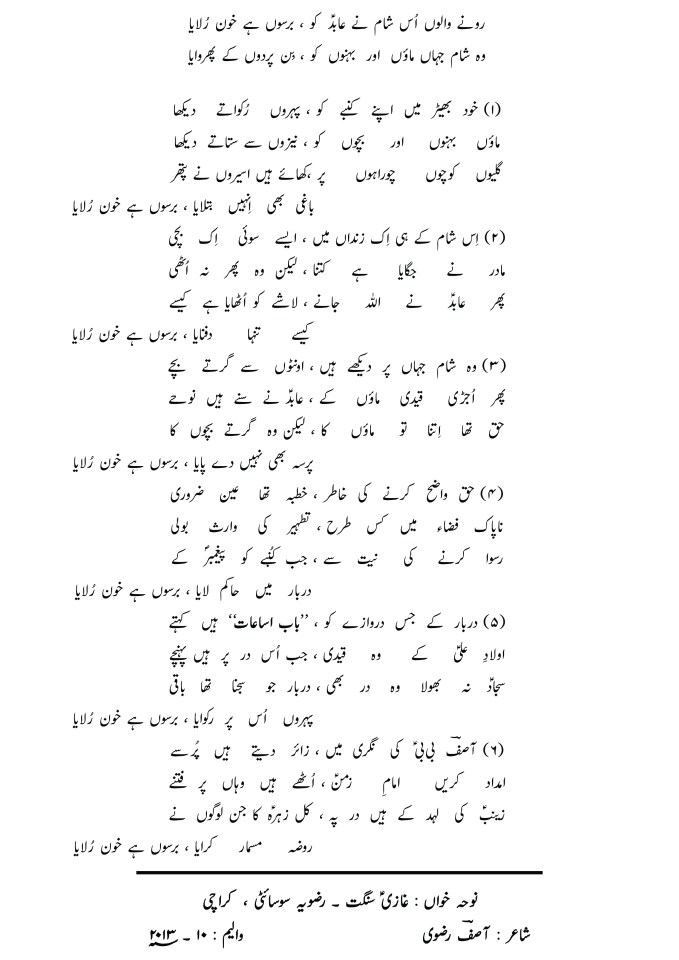 رونے والوں اُس شام نے عابدؑ کو ، برسوں ہے خون رُلایا
وہ شام جہاں ماؤں اور بہنوں کو ، بن پردوں کے پھروایا
(۱) خود بھیڑ میں اپنے کنبے کو ، پہروں رُکواتے دیکھا
ماؤں بہنوں اور بچوں کو ، نیزوں سے ستاتے دیکھا
گلیوں کوچوں چوراہوں پر ،کھائے ہیں اسیروں نے پتھر
باغی بھی اِنہیں بتلایا ، برسوں ہے خون رُلایا
(۲) اِس شام کے ہی اِک زنداں میں ، ایسے سوئی اِک بچی
مادر نے جگایا ہے کتنا ، لیکن وہ پھر نہ اُٹھی
پھر عابدؑ نے اللہ جانے ، لاشے کو اُٹھایا ہے کیسے
کیسے تنہا دفنایا ، برسوں ہے خون رُلایا
(۳) وہ شام جہاں پر دیکھے ہیں ، اونٹوں سے گرتے بچے
پھر اُجڑی قیدی ماؤں کے ، عابدؑ نے سنے ہیں نوحے
حق تھا اِتنا تو ماؤں کا ، لیکن وہ گرتے بچوں کا
پرسہ بھی نہیں دے پایا ، برسوں ہے خون رُلایا
(۴) حق واضح کرنے کی خاطر ، خطبہ تھا عین ضروری
ناپاک فضاء میں کس طرح ، تطہیر کی وارث بولی
رسوا کرنے کی نیت سے ، جب کُنبے کو پیغمبرؐ کے
دربار میں حاکم لایا ، برسوں ہے خون رُلایا
(۵) دربار کے جس دروازے کو ، ’’باب اساعات‘‘ ہیں کہتے
اولادِ علیؑ کے وہ قیدی ، جب اُس در پر ہیں پہنچے
سجادؑ نہ بھولا وہ در بھی ، دربار جو سجنا تھا باقی
پہروں اُس پر رکوایا ، برسوں ہے خون رُلایا
(۶) آصفؔ بی بیؑ کی نگری میں ، زائر دیتے ہیں پُرسے
امداد کریں امامِ زمنؑ ، اُٹھے ہیں وہاں پر فتنے
زینبؑ کی لہد کے ہیں در پہ ، کل زہرہؑ کا جن لوگوں نے
روضہ مسمار کرایا ، برسوں ہے خون رُلایا
نوحہ خواں : غازیؑ سنگت ۔ رضویہ سوسائٹی ، کراچی
شاعر : آصفؔ رضوی والیم : ۱۰ ۔ ۲۰۱۳